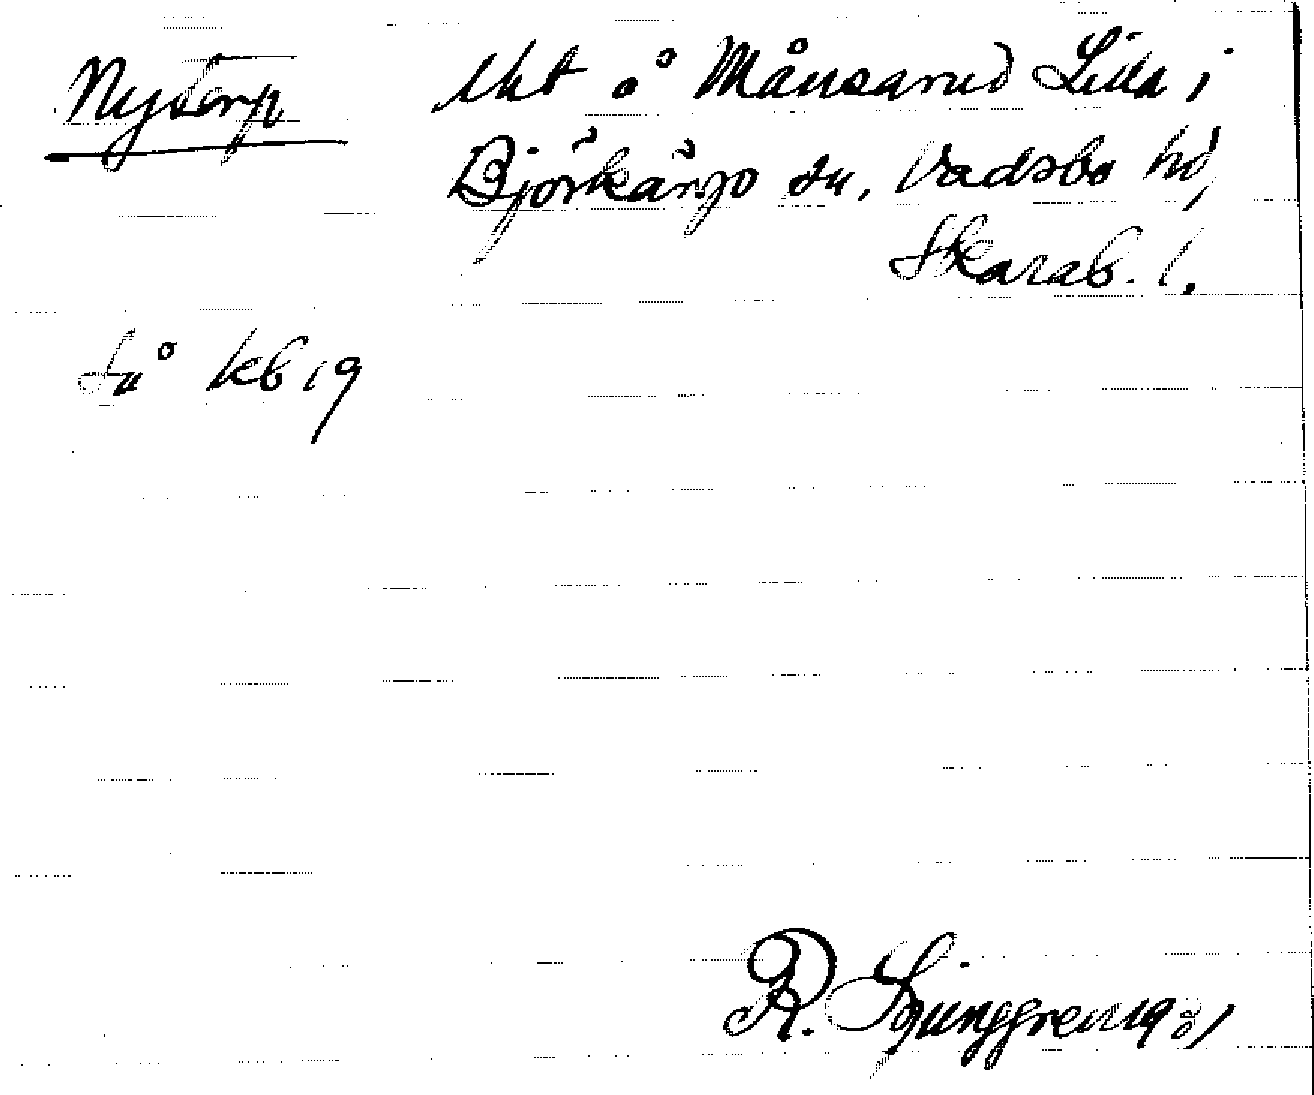 Nytorp
t/ht å Månsarud Lilla i
Björkängs sn, Vadsbo hd,
Skarab. l.
så kb 19
R. Ljunggren 19